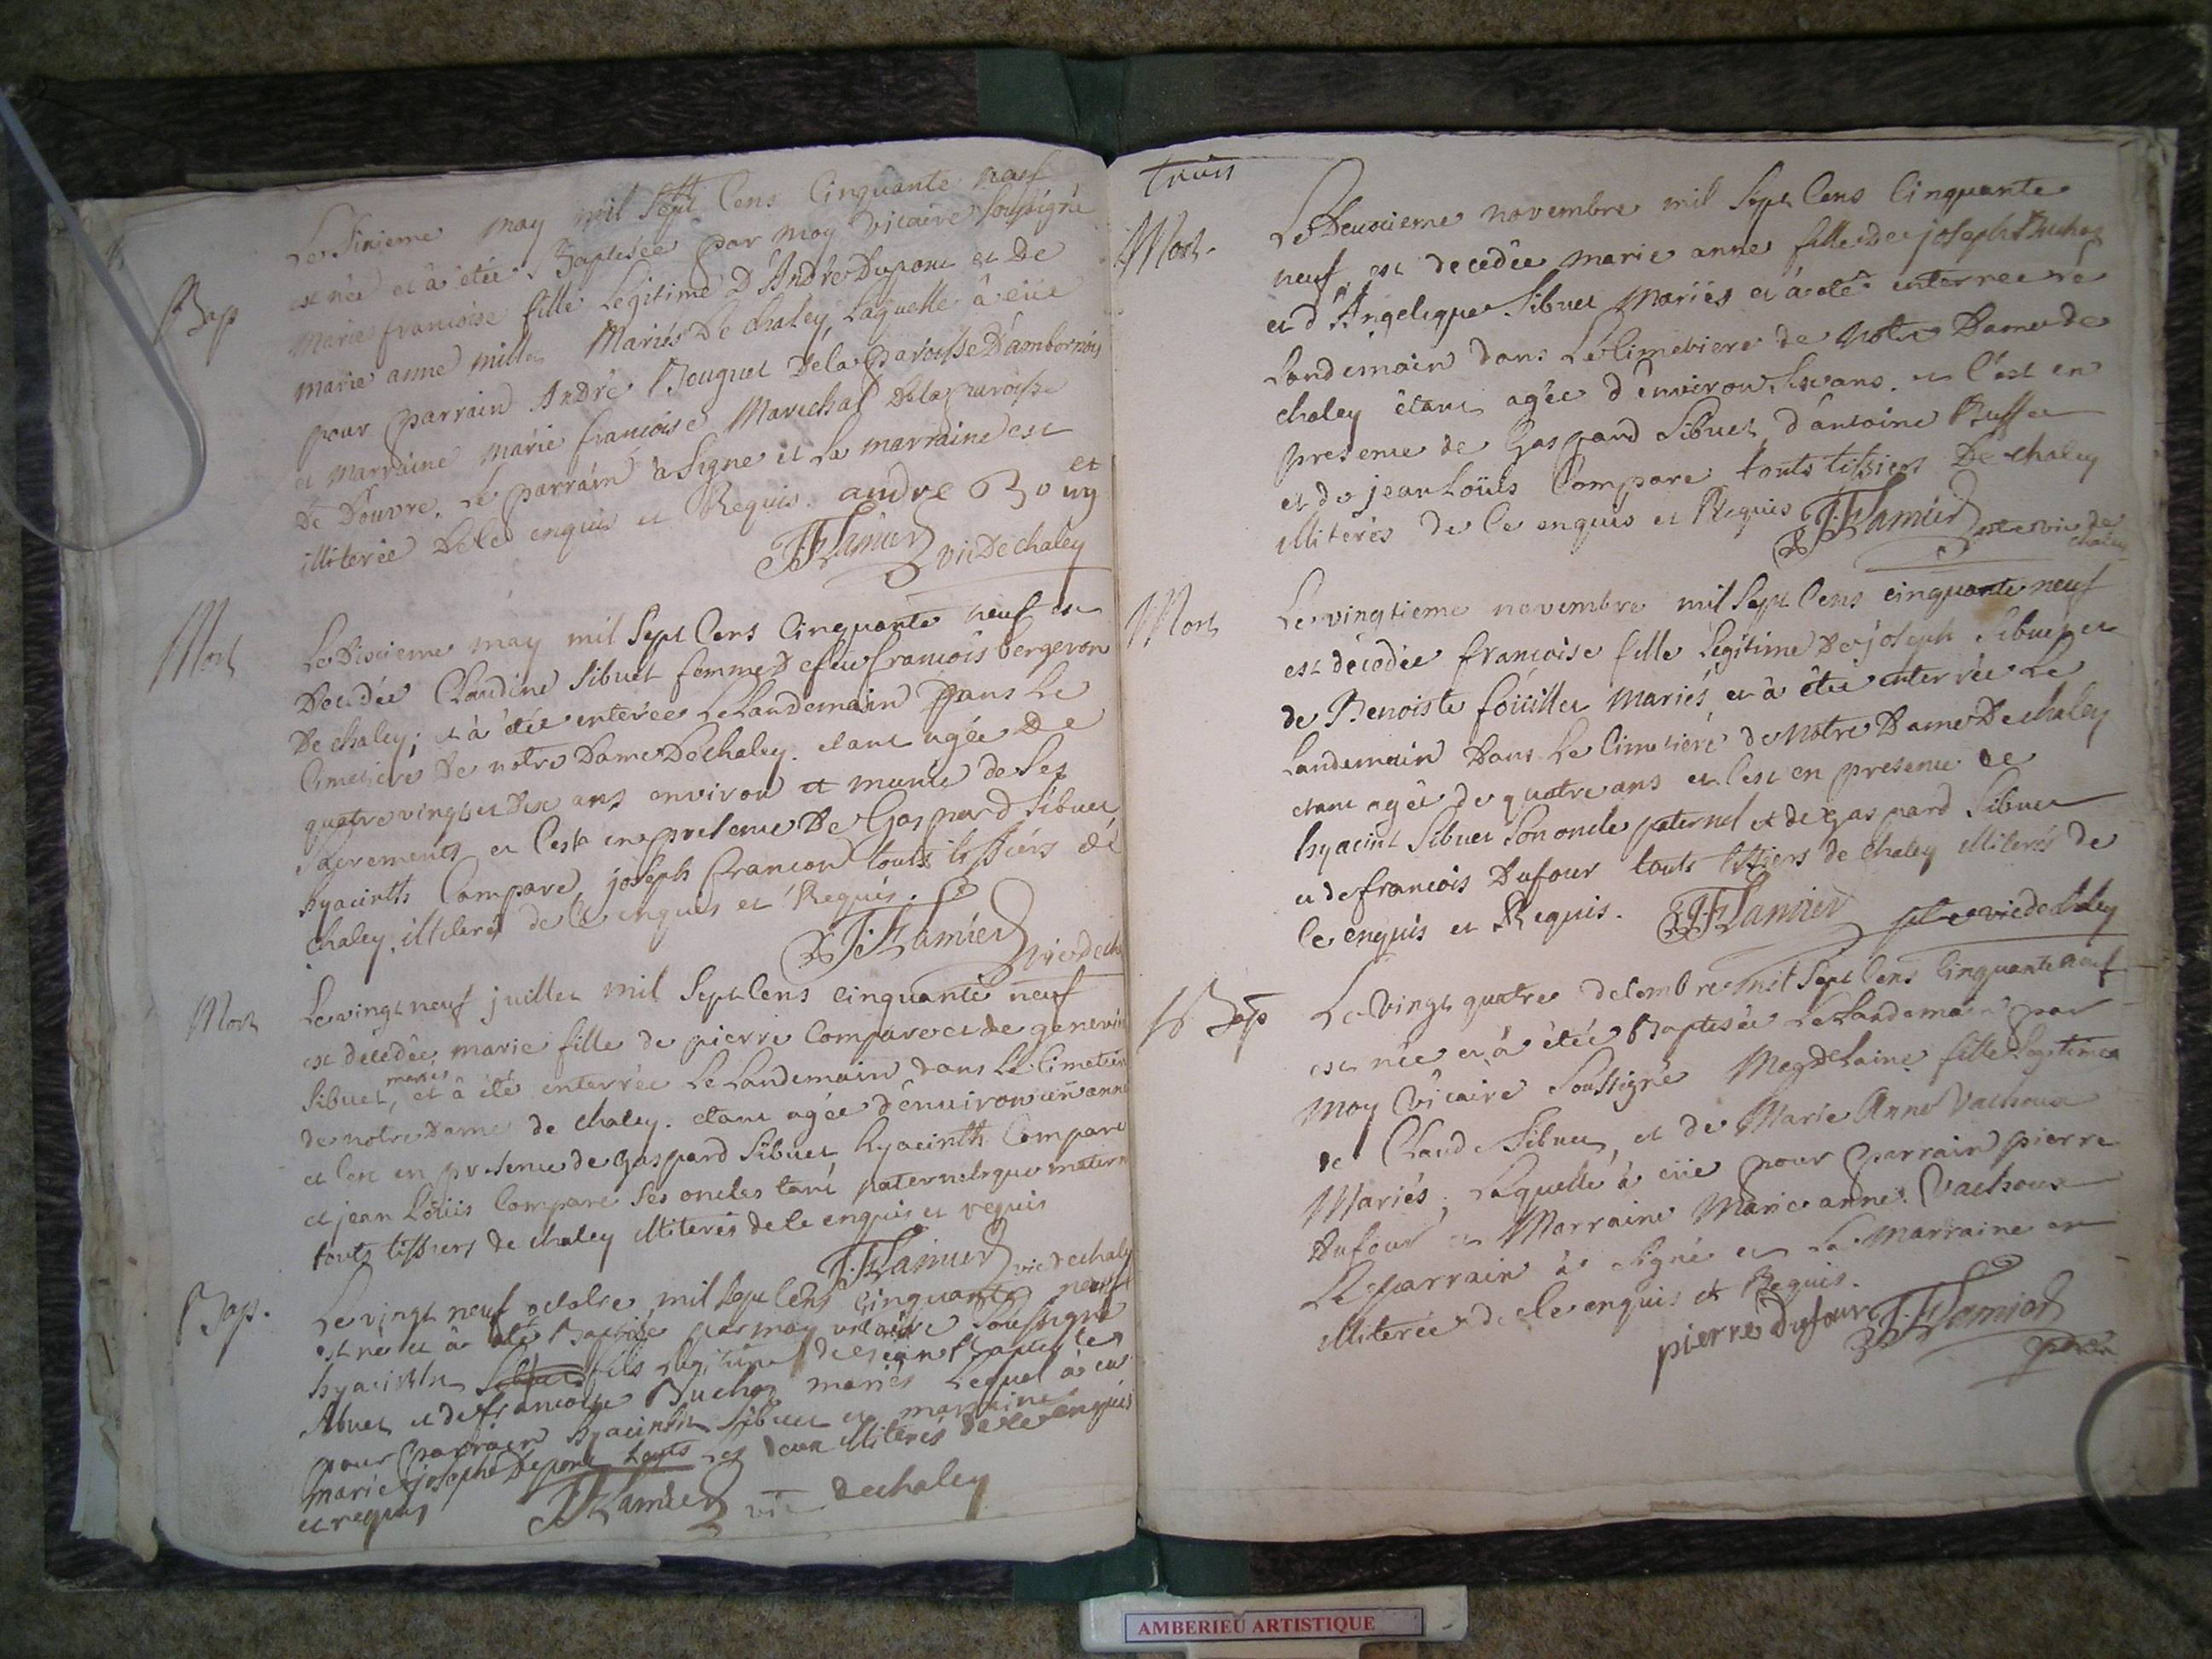 Bap
Le Sixieme may mil Sept Cens Cinquante neuf
est née et à étée Baptisée par moy vicaire soussigné
marie francoise fille Legitime D'André Dupont et De
marie anne millet Mariés De chaley, Laquelle à eüe
pour parrain André Bouguet De la Paroisse D'ambornois
et marraine marie francoise Marechal De la paroisse
De Douvre. Le parrain à Signe et La marraine est
illiterée De Ce enquis et Requis. andre Bouget
JFLamier vic De chaley
Mort
Le Dixieme may mil Sept Cens Cinquante neuf est
Decedée Claudine Sibuet femme De feu francois bergeron
De chaley; et à étée interée Le Landemain Dans Le
Cimetiere De notre Dame De Chaley. etant agée De
quatre vingt et Dix ans environ et munie de Ses
Sacrements et C'est en presence De Gaspard Sibuet
hyacinth Compare, joseph francon touts tissiers de
chaley. illiterés de Ce enquis et Requis.
JFLamier vic de cha
Mort
Le vingt neuf juillet mil Sept Cens Cinquante neuf
est décédée marie fille de pierre Compare et de genevie
mariés
Sibuet, et à été enterrée Le Landemain dans Le Cimetier
de notre Dame de chaley. etant agée d'environ un ann
et C'est en presence de gaspard Sibuet hyacinth Compare
et jean Loüis Compare Ses oncles tant paternels que matern
touts tissiers de chaley illiterés de Ce enquis et requis
JFLamier vic de chaley
Bap.
Le vingt neuf octobre mil Sept Cens Cinquante neuf
est né et à été Baptisé par moy vicaire Soussigné
hyacinthe fils Legitime de jean Baptiste
Sibuet et de francoise Buchoz mariés Lequel à eu
pour parrain hyacinth Sibuet et marraine
marie josephe Dupont Les deux illiterés de Ce enquis
et requis
JFLamier vic de chaley
trois
Mort.
Le Deuxieme novembre mil Sept Cens Cinquante
neuf, est decedée marie anne fille De joseph Buchoz
et d'Angelique Sibuet Mariés et à été enterree Le
Landemain dans Le Cimetiere de Notre Dame de
chaley étant agée d'environ Six ans. et C'est en
presence de Gaspard Sibuet, d'antoine Buffet
et de jean Loüis Compare touts tissiers De chaley
illiterés de Ce enquis et Requis JFLamier ptre vic de
chaley
Mort
Le vingtieme novembre mil Sept Cens cinquante neuf
est décedée francoise fille Légitime De joseph Sibuet et
de Benoiste foüillet Mariés, et à étée enterrée Le
Landemain Dans Le Cimetiere de Notre Dame De chaley
etant agée de quatre ans et C'est en presence de
hyacint Sibuet Son oncle paternel et de gaspard Sibuet
et de francois Dufour touts tissiers de Chaley illiterés de
Ce enquis et Requis. JFLamier ptre vic de chaley
Bap
Le Vingt quatre decembre mil Sept Cens Cinquante neuf
est née et à étée Baptisée Le Landemain par
moy Vicaire Soussigné Magdelaine fille Legitime
de Claude Sibuet, et de Marie Anne Vachoux
Mariés; Laquelle à eüe pour parrain pierre
Dufour et Marraine Marie anne Vachoux
Le parrain à Signé et La Marraine est
illiterée de Ce enquis et Requis.
pierre Dufour JFLamier
AMBERIEU ARTISTIQUE